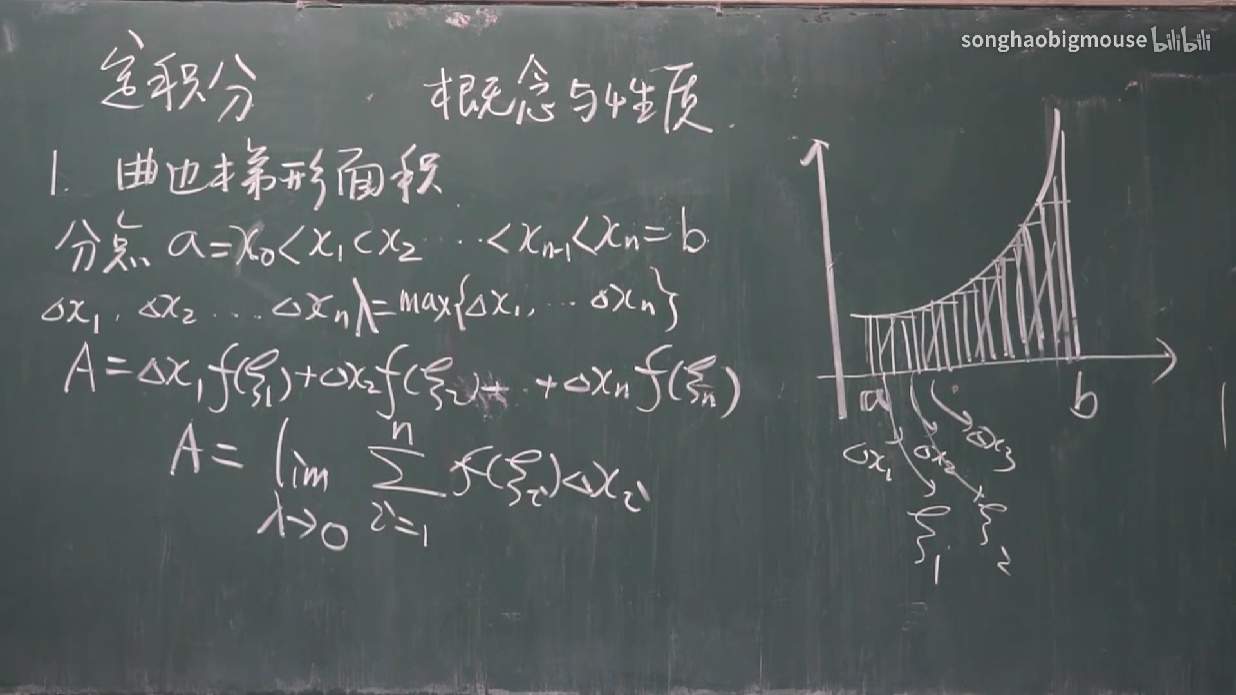 songhaobigmouse bilibili
定积分 概念与性质.
1. 曲边梯形面积.
分点 a=x₀<x₁<x₂ ⋯ <xₙ₋₁<xₙ=b.
Δx₁, Δx₂ ⋯ Δxₙ λ=max{Δx₁, ⋯ Δxₙ}
A=Δx₁f(ξ₁)+Δx₂f(ξ₂)+ ⋯ +Δxₙf(ξₙ)
A= lim_{λ→0} ∑_{i=1}^{n} f(ξᵢ)Δxᵢ
a b
Δx₁ Δx₂ Δx₃
ξ₁ ξ₂